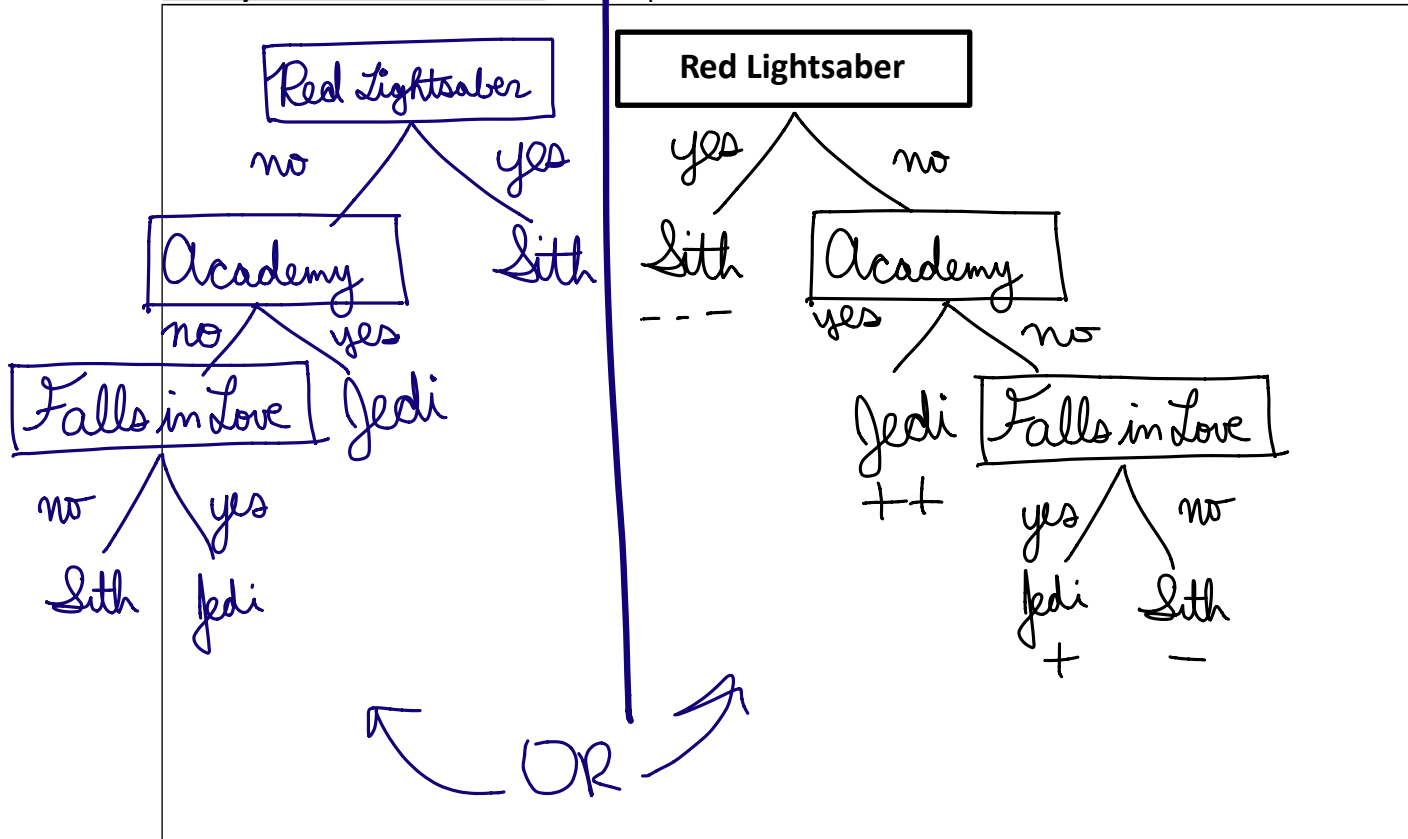 Red Lightsaber
no
yes
Academy
Sith
no
yes
Falls in Love
Jedi
no
yes
Sith
Jedi
Red Lightsaber
yes
no
Sith
Academy
- - -
yes
no
Jedi
Falls in Love
++
yes
no
Jedi
Sith
+
-
OR